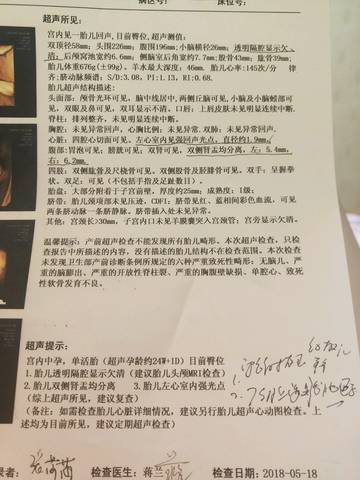 病区号: 床位号:
超声所见:
宫内见一胎儿回声,目前臀位,超声测值:
双顶径58mm; 头围226mm; 腹围196mm;小脑横径26mm; 透明隔腔显示欠
清; 后颅窝池宽约6.6mm; 侧脑室后角宽约7.7mm;股骨43mm; 肱骨39mm;
胎儿体重676g(±99g)。羊水最大深度: 46mm. 胎儿心率:145次/分 律
齐;脐动脉频谱: S/D:3.08. PI:1.13, RI:0.68.
胎儿超声结构描述:
头面部: 颅骨光环可见, 脑中线居中,两侧丘脑可见,小脑及小脑蚓部可
见,双眼及鼻可见, 双耳显示不清。口唇: 上唇皮肤未见明显连续中断.
脊柱: 排列整齐, 未见明显连续中断。
胸腔: 未见异常回声, 心胸比例: 未见异常.双肺: 未见异常回声.
心脏: 四腔心切面可见, 左心室内见强回声光点, 直径约1.9mm,
腹部:胃泡可见; 膀胱可见; 双肾可见, 双侧肾盂均分离, 左: 5.4mm,
右: 6.2mm.
四肢: 双侧肱骨及尺桡骨可见, 双侧股骨及胫腓骨可见, 双手: 呈握拳
状。双足: 可见(不包括手指及足趾数目)。
胎盘: 大部分附着于子宫前壁, 厚度约25mm; 成熟度: I级:
脐带: 胎儿颈项部未见压迹, CDFI: 脐带见红、蓝相间彩色血流, 可见
两条脐动脉一条脐静脉。脐带插入处未见异常。
其他: 宫颈长30mm, 子宫内口未见羊膜囊突入宫颈管; 宫旁显示欠清。
温馨提示: 产前超声检查不能发现所有胎儿畸形。本次超声检查, 只检
查报告中所描述的内容, 没有描述的胎儿结构不在检查范围。本次检查
未发现卫生部产前诊断条例所规定的六种严重致死性畸形: 无脑儿、严
重的脑膨出、严重的开放性脊柱裂、严重的胸腹壁缺损、单腔心、致死
性软骨发育不良。
超声提示:
宫内中孕, 单活胎 (超声孕龄约24W+1D)目前臀位
1.胎儿透明隔腔显示欠清(建议胎儿头颅MRI检查)
2.胎儿双侧肾盂均分离 3.胎儿左心室内强光点
(综上超声所见, 建议复查)
(备注: 如需检查胎儿心脏详细情况, 建议另行胎儿超声心动图检查。上
述均为目前所见, 建议定期超声检查)
1.
2.
录者: 检查医生: 蒋兰 检查日期: 2018-05-18